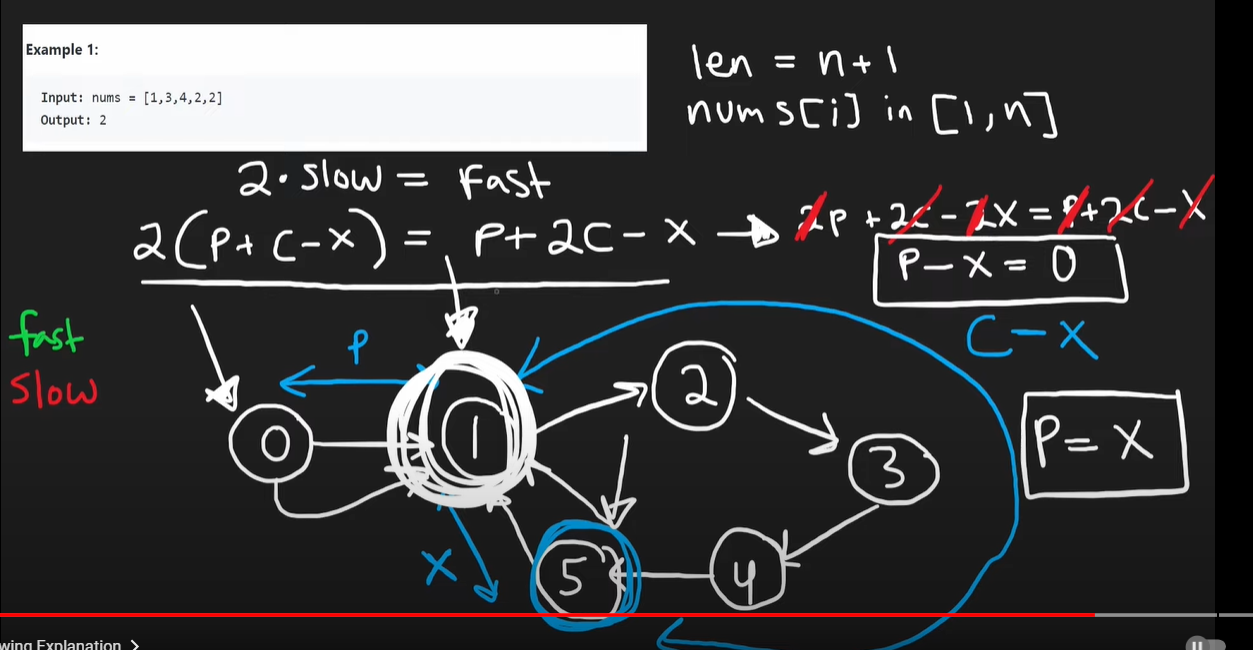 Example 1:
Input: nums = [1,3,4,2,2]
Output: 2
len = n+1
nums[i] in [1,n]
2·slow = Fast
2(P+C-X) = P+2C-X → 2P+2C-2X=P+2C-X
P-X=0
fast
slow
P
C-X
0
1
2
3
P=X
X
5
4
wing Explanation >